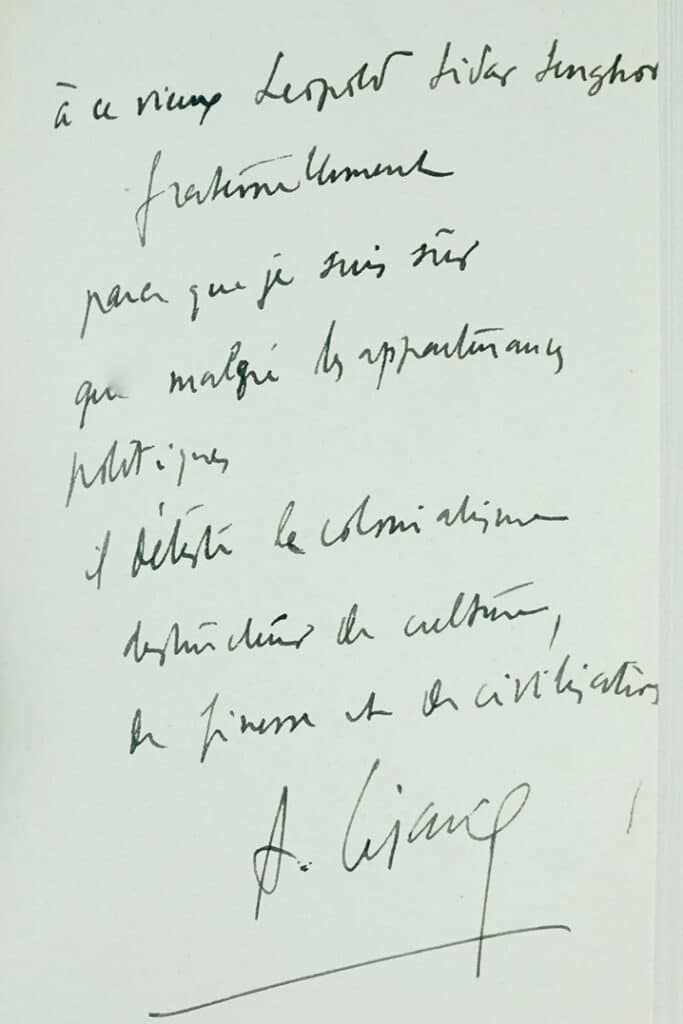 à ce vieux Leopold Sédar Senghor
fraternellement
parce que je suis sûr
que malgré les appartenances
politiques
il déteste le colonialisme
destructeur de culture,
de finesse et de civilisation
A. Césaire